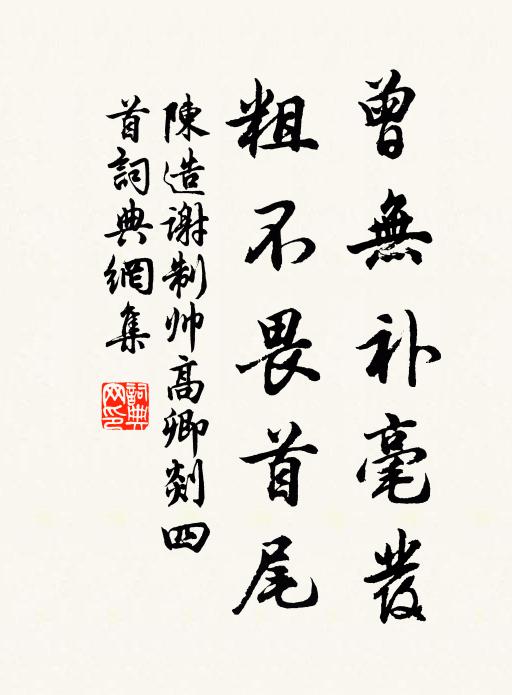 曾無补毫發
粗不畏首尾
陳造谢制帅高卿剡四
首詞典網集
詞典網印